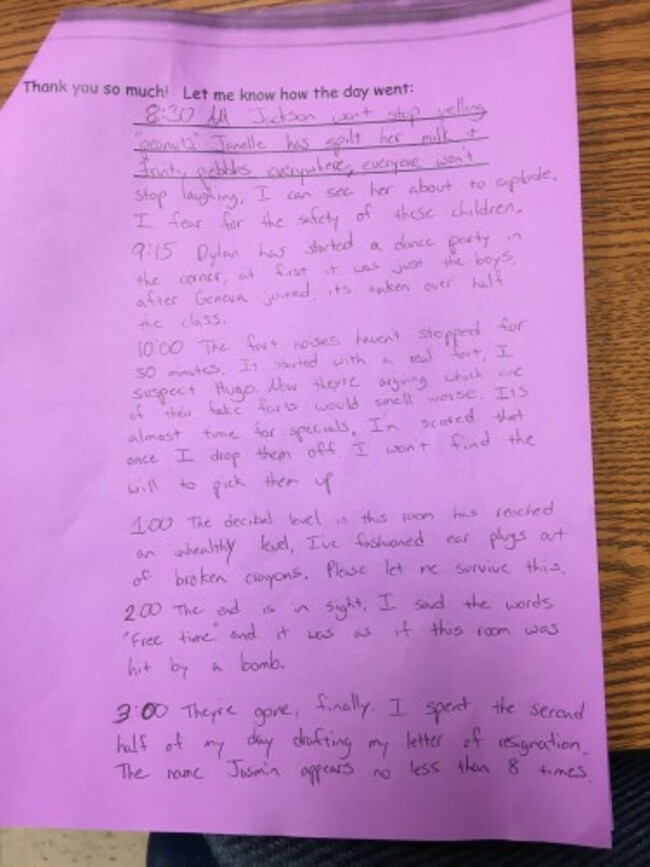 Thank you so much! Let me know how the day went:
8:30 AM Jackson won't stop yelling
"peanuts" Janelle has spilt her milk +
fruity pebbles everywhere, everyone won't
stop laughing, I can see her about to explode.
I fear for the safety of these children.
9:15 Dylan has started a dance party in
the corner, at first it was just the boys,
after Geneva joined, its taken over half
the class.
10:00 The fart noises haven't stopped for
30 minutes. It started with a real fart, I
suspect Hugo. Now theyre arguing which one
of their fake farts would smell worse. Its
almost time for specials. I'm scared that
once I drop them off I won't find the
will to pick them up
1:00 The decibal level in this room has reached
an unhealthy level, Ive fashioned ear plugs out
of broken crayons. Please let me survive this.
2:00 The end is in sight. I said the words
"Free time" and it was as if this room was
hit by a bomb.
3:00 Theyre gone, finally. I spent the second
half of my day drafting my letter of resignation.
The name Jasmin appears no less than 8 times.